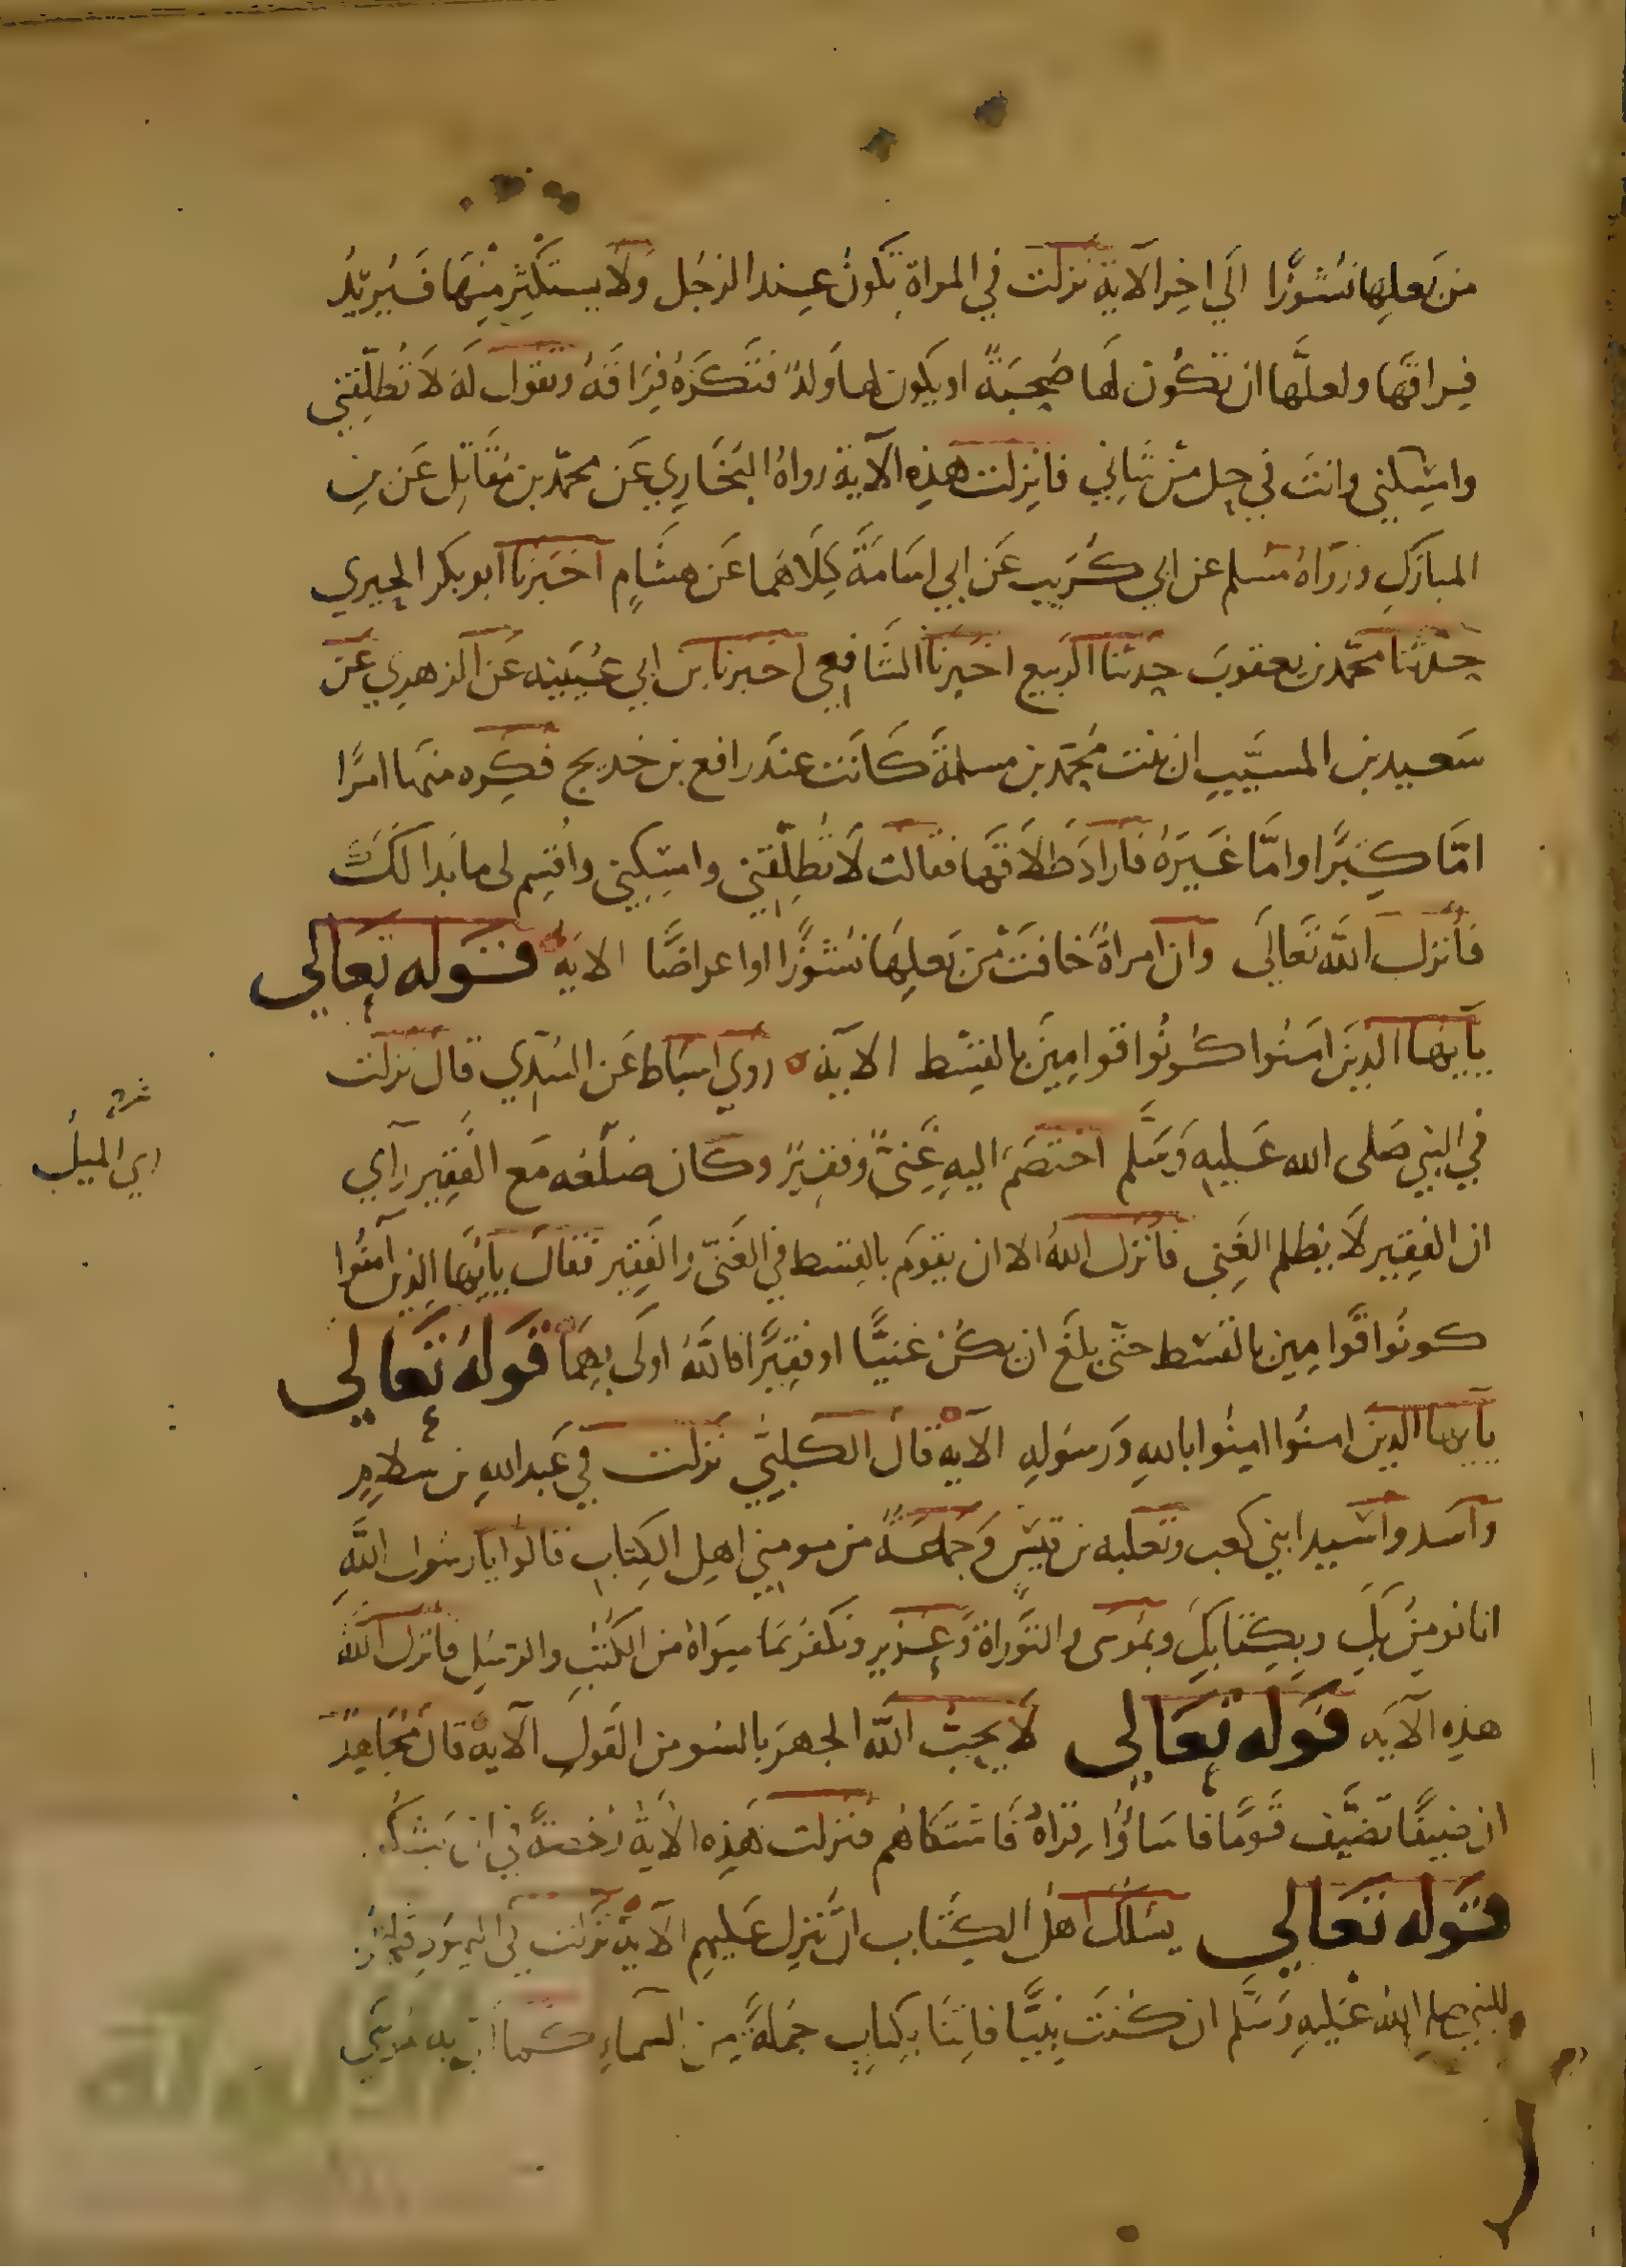 من بعلها نشوزا الي اخر الاية نزلت في المراة تكون عند الرجل ولا يستكثر منها فيريد
فراقها ولعلها ان تكون لها صحبة او يكون لها ولد فتكره فراقه وتقول له لا تطلقني
وامسكني وانت في حل من شاني فانزلت هذه الآية رواه البخاري عن محمد بن مقاتل عن بن
المبارك ورواه مسلم عن ابي كريب عن ابي اسامة كلاهما عن هشام اخبرنا ابو بكر الحيري
حدثنا محمد بن يعقوب حدثنا الربيع اخبرنا الشافعي اخبرنا بن ابي عيينه عن الزهري عن
سعيد بن المسيب ان بنت محمد بن مسلمة كانت عند رافع بن خديج فكره منها امرا
امّا كبرا وامّا غيره فاراد طلاقها فقالت لا تطلقني وامسكني واقسم لى ما بدا لك
فأنزل الله تعالى وان امراة خافت من بعلها نشوزا او اعراضا الايه قوله تعالي
يأيها الذين امنوا كونوا قوامين بالقسط الاية روي اسباط عن السدي قال نزلت
في النبي صلى الله عليه وسلم اختصم اليه غني وفقير وكان ضلعه مع الفقير رآي
اي الميل
ان الفقير لا يظلم الغني فانزل الله الا ان يقوم بالقسط في الغنى والفقير فقال يأيها الذين آمنوا
كونوا قوامين بالقسط حتى بلغ ان يكن غنيا او فقيرا فالله اولى بهما قوله تعالي
يأيها الذين امنوا امنوا بالله ورسوله الآيه قال الكلبي نزلت في عبد الله بن سلام
واسد واسيد ابني كعب وثعلبه بن قيس وجماعة من مومني اهل الكتاب قالوا يا رسول الله
انا نومن بك وبكتابك وبموسى والتوراة وعزير ونكفر بما سواه من الكتب والرسل فانزل الله
هذه الآيه قوله تعالي لا يحب الله الجهر بالسو من القول الآية قال مجاهد
ان ضيفا تضيف قوما فاساؤا قراه فاشتكاهم فنزلت هذه الآية رخصة في ان يشكو
قوله تعالي يسلك اهل الكتاب ان تنزل عليهم الآية نزلت في اليهود قالوا
للنبي صلى الله عليه وسلم ان كنت نبيا فاتنا بكتاب جملة من السماء كما اتى به موسي